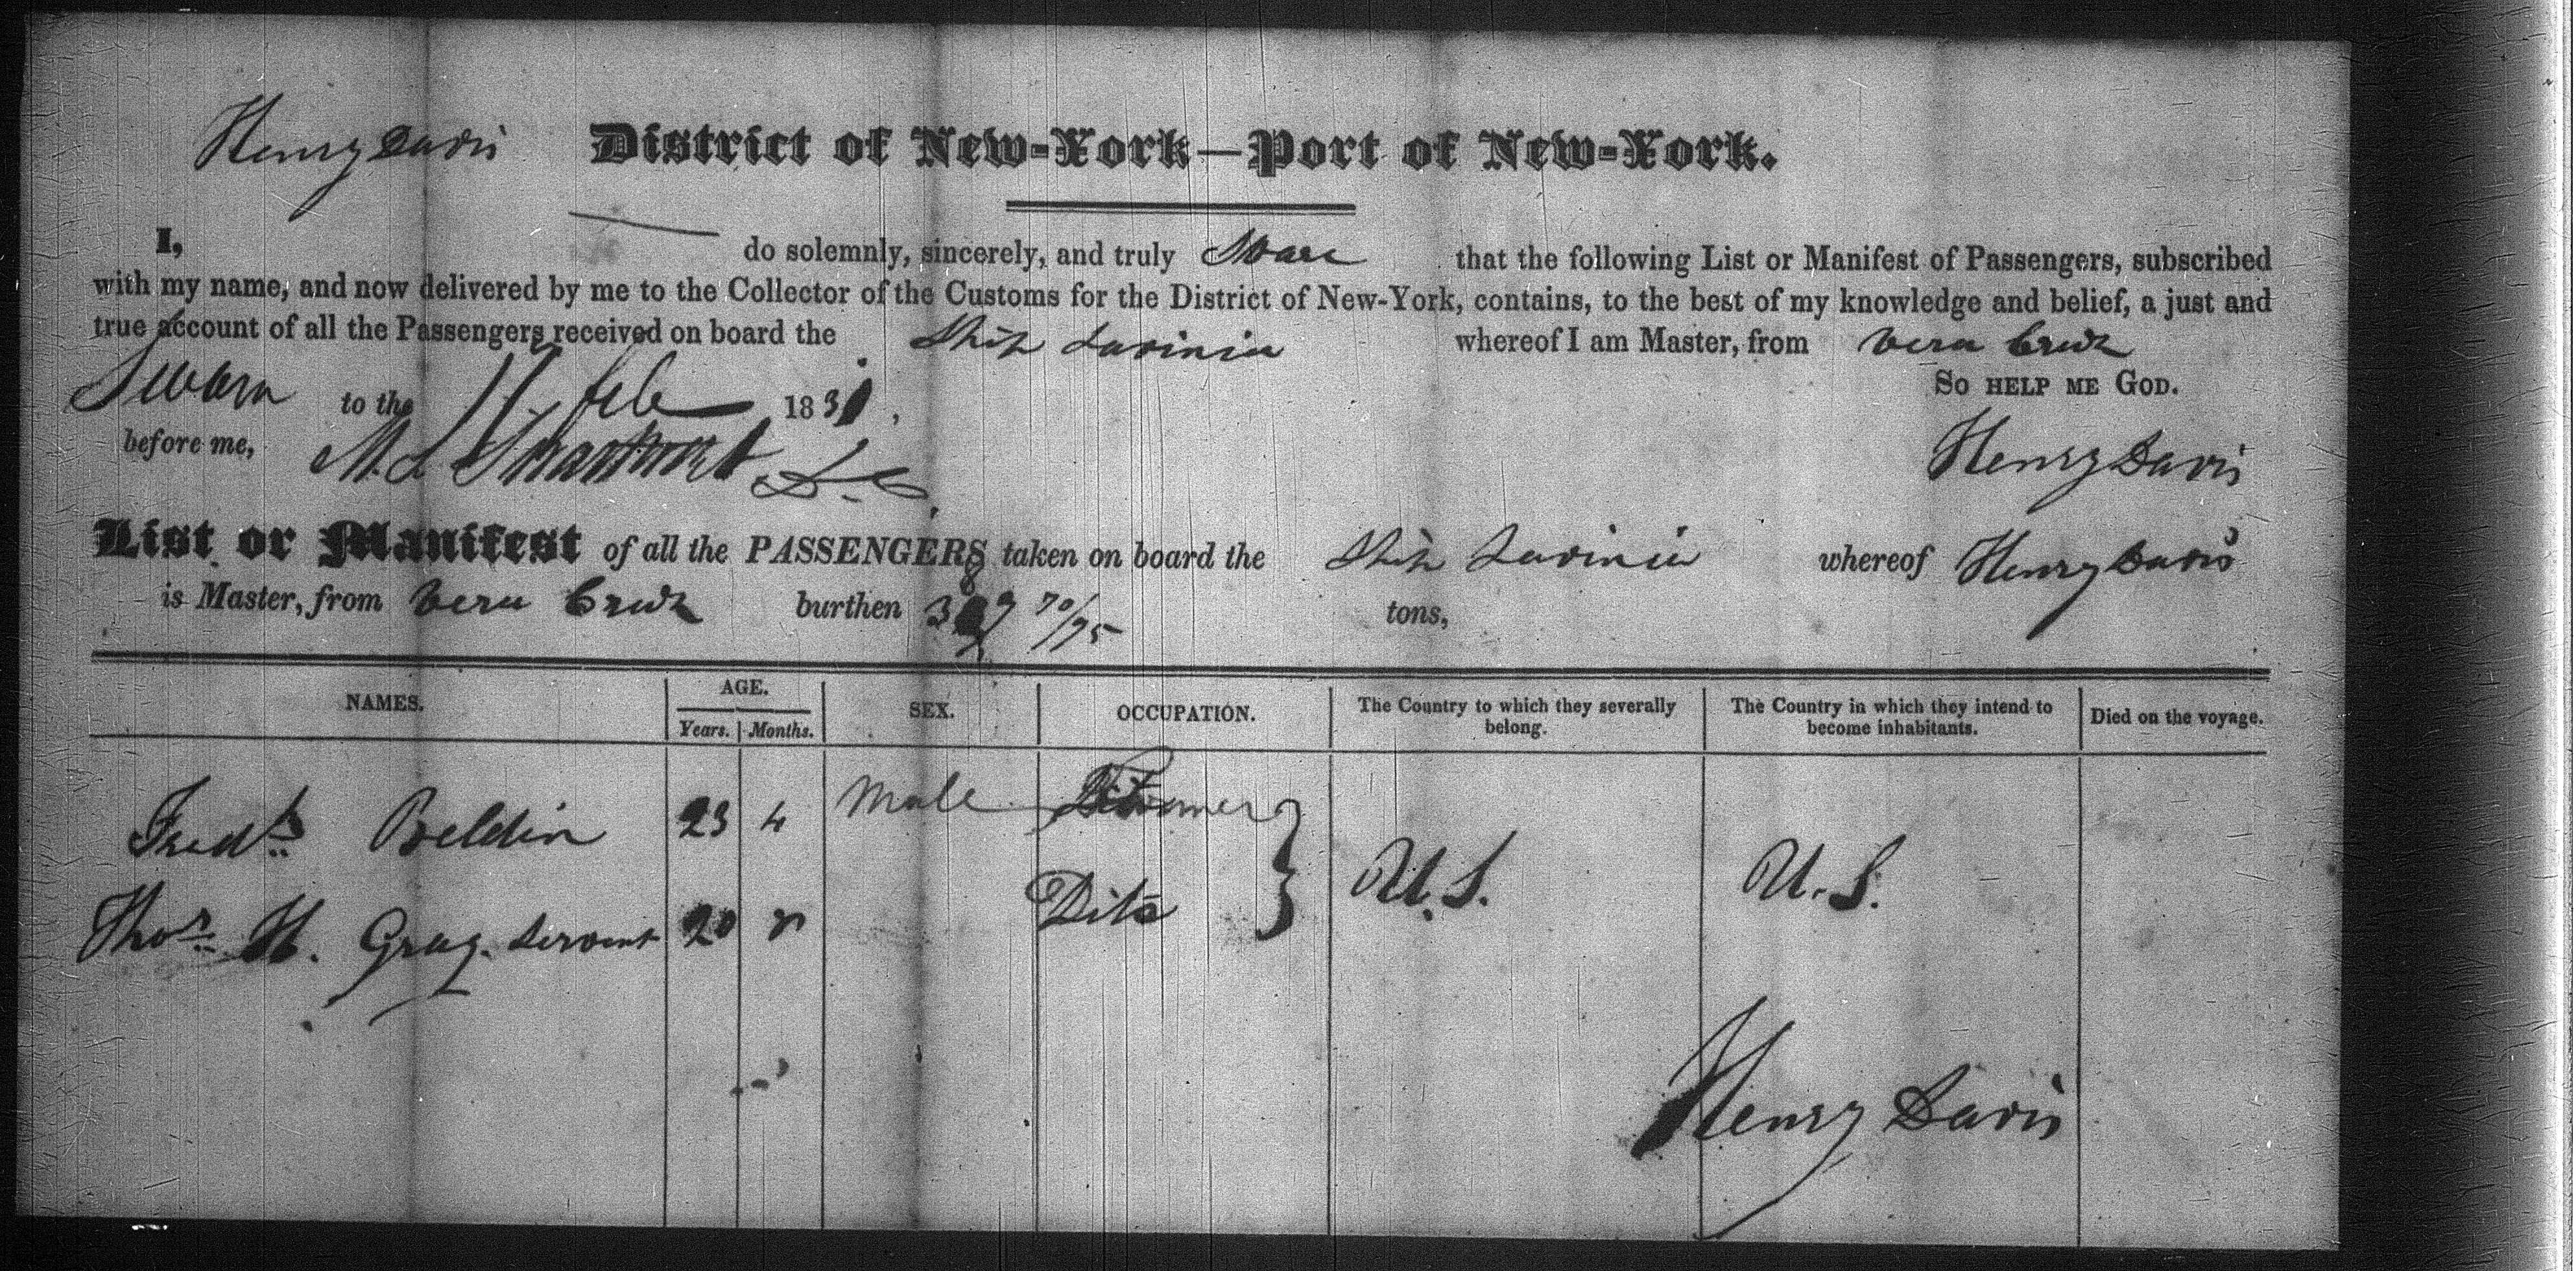 Henry Davis
District of New-York—Port of New-York.
I, do solemnly, sincerely, and truly Swear that the following List or Manifest of Passengers, subscribed
with my name, and now delivered by me to the Collector of the Customs for the District of New-York, contains, to the best of my knowledge and belief, a just and
true account of all the Passengers received on board the Ship Lavinia whereof I am Master, from Vera Cruz
So help me God.
Sworn to the 11 feb 1831,
before me, M. L. Swartwout D.C.
Henry Davis
List or Manifest of all the PASSENGERS taken on board the Ship Lavinia whereof Henry Davis
is Master, from Vera Cruz burthen 70/95 tons,
NAMES. AGE. SEX. OCCUPATION. The Country to which they severally belong. The Country in which they intend to become inhabitants. Died on the voyage.
Years. Months.
Fredk Beldin 23 4 Male U.S. U.S.
Thos H. Gray. Servant 20 Dito
Henry Davis